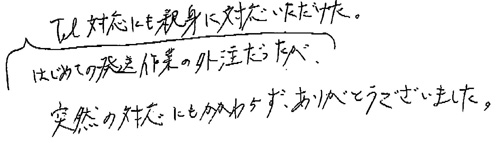 Tel対応にも親身に対応いただけた。
はじめての発送作業の外注だったが、
突然の対応にもかかわらず、ありがとうございました。